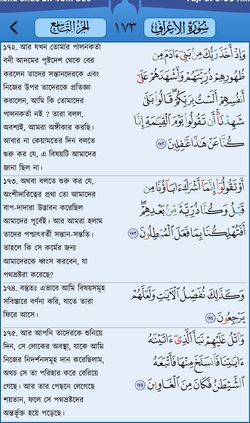 سُورَةُ الأَعْرَافِ ١٧٣ الجُزْءُ التَّاسِعُ
১৭২. আর যখন তোমার পালনকর্তা
বনী আদমের পৃষ্টদেশ থেকে বের
করলেন তাদের সন্তানদেরকে এবং
নিজের উপর তাদেরকে প্রতিজ্ঞা
করালেন, আমি কি তোমাদের
পালনকর্তা নই ? তারা বলল,
অবশ্যই, আমরা অঙ্গীকার করছি।
আবার না কেয়ামতের দিন বলতে
শুরু কর যে, এ বিষয়টি আমাদের
জানা ছিল না।
وَإِذْ أَخَذَ رَبُّكَ مِنۢ بَنِىٓ ءَادَمَ مِن
ظُهُورِهِمْ ذُرِّيَّتَهُمْ وَأَشْهَدَهُمْ عَلَىٰٓ
أَنفُسِهِمْ أَلَسْتُ بِرَبِّكُمْ ۖ قَالُوا۟ بَلَىٰ
شَهِدْنَآ ۛ أَن تَقُولُوا۟ يَوْمَ ٱلْقِيَـٰمَةِ إِنَّا
كُنَّا عَنْ هَـٰذَا غَـٰفِلِينَ ١٧٢
১৭৩. অথবা বলতে শুরু কর যে,
অংশীদারিত্বের প্রথা তো আমাদের
বাপ-দাদারা উদ্ভাবন করেছিল
আমাদের পূর্বেই। আর আমরা হলাম
তাদের পশ্চাৎবর্তী সন্তান-সন্ততি।
তাহলে কি সে কর্মের জন্য
আমাদেরকে ধ্বংস করবেন, যা
পথভ্রষ্টরা করেছে?
أَوْ تَقُولُوٓا۟ إِنَّمَآ أَشْرَكَ ءَابَآؤُنَا مِن
قَبْلُ وَكُنَّا ذُرِّيَّةً مِّنۢ بَعْدِهِمْ ۖ
أَفَتُهْلِكُنَا بِمَا فَعَلَ ٱلْمُبْطِلُونَ ١٧٣
১৭৪. বস্তুতঃ এভাবে আমি বিষয়সমূহ
সবিস্তারে বর্ণনা করি, যাতে তারা
ফিরে আসে।
وَكَذَٰلِكَ نُفَصِّلُ ٱلْـَٔايَـٰتِ وَلَعَلَّهُمْ
يَرْجِعُونَ ١٧٤
১৭৫. আর আপনি তাদেরকে শুনিয়ে
দিন, সে লোকের অবস্থা, যাকে আমি
নিজের নিদর্শনসমূহ দান করেছিলাম,
অথচ সে তা পরিহার করে বেরিয়ে
গেছে। আর তার পেছনে লেগেছে
শয়তান, ফলে সে পথভ্রষ্টদের
অন্তর্ভূক্ত হয়ে পড়েছে।
وَٱتْلُ عَلَيْهِمْ نَبَأَ ٱلَّذِىٓ ءَاتَيْنَـٰهُ
ءَايَـٰتِنَا فَٱنسَلَخَ مِنْهَا فَأَتْبَعَهُ
ٱلشَّيْطَـٰنُ فَكَانَ مِنَ ٱلْغَاوِينَ ١٧٥